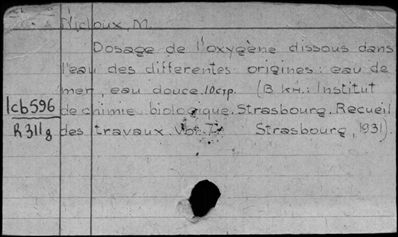 Nicloux, M.
Dosage de l'oxygène dissous dans
l'eau des differentes origines: eau de
mer, eau douce. 10стр. (В кн.: Institut
Icb596
de chimie biologique. Strasbourg. Recueil
R311g
des travaux. Vol. 7. Strasbourg, 1931).